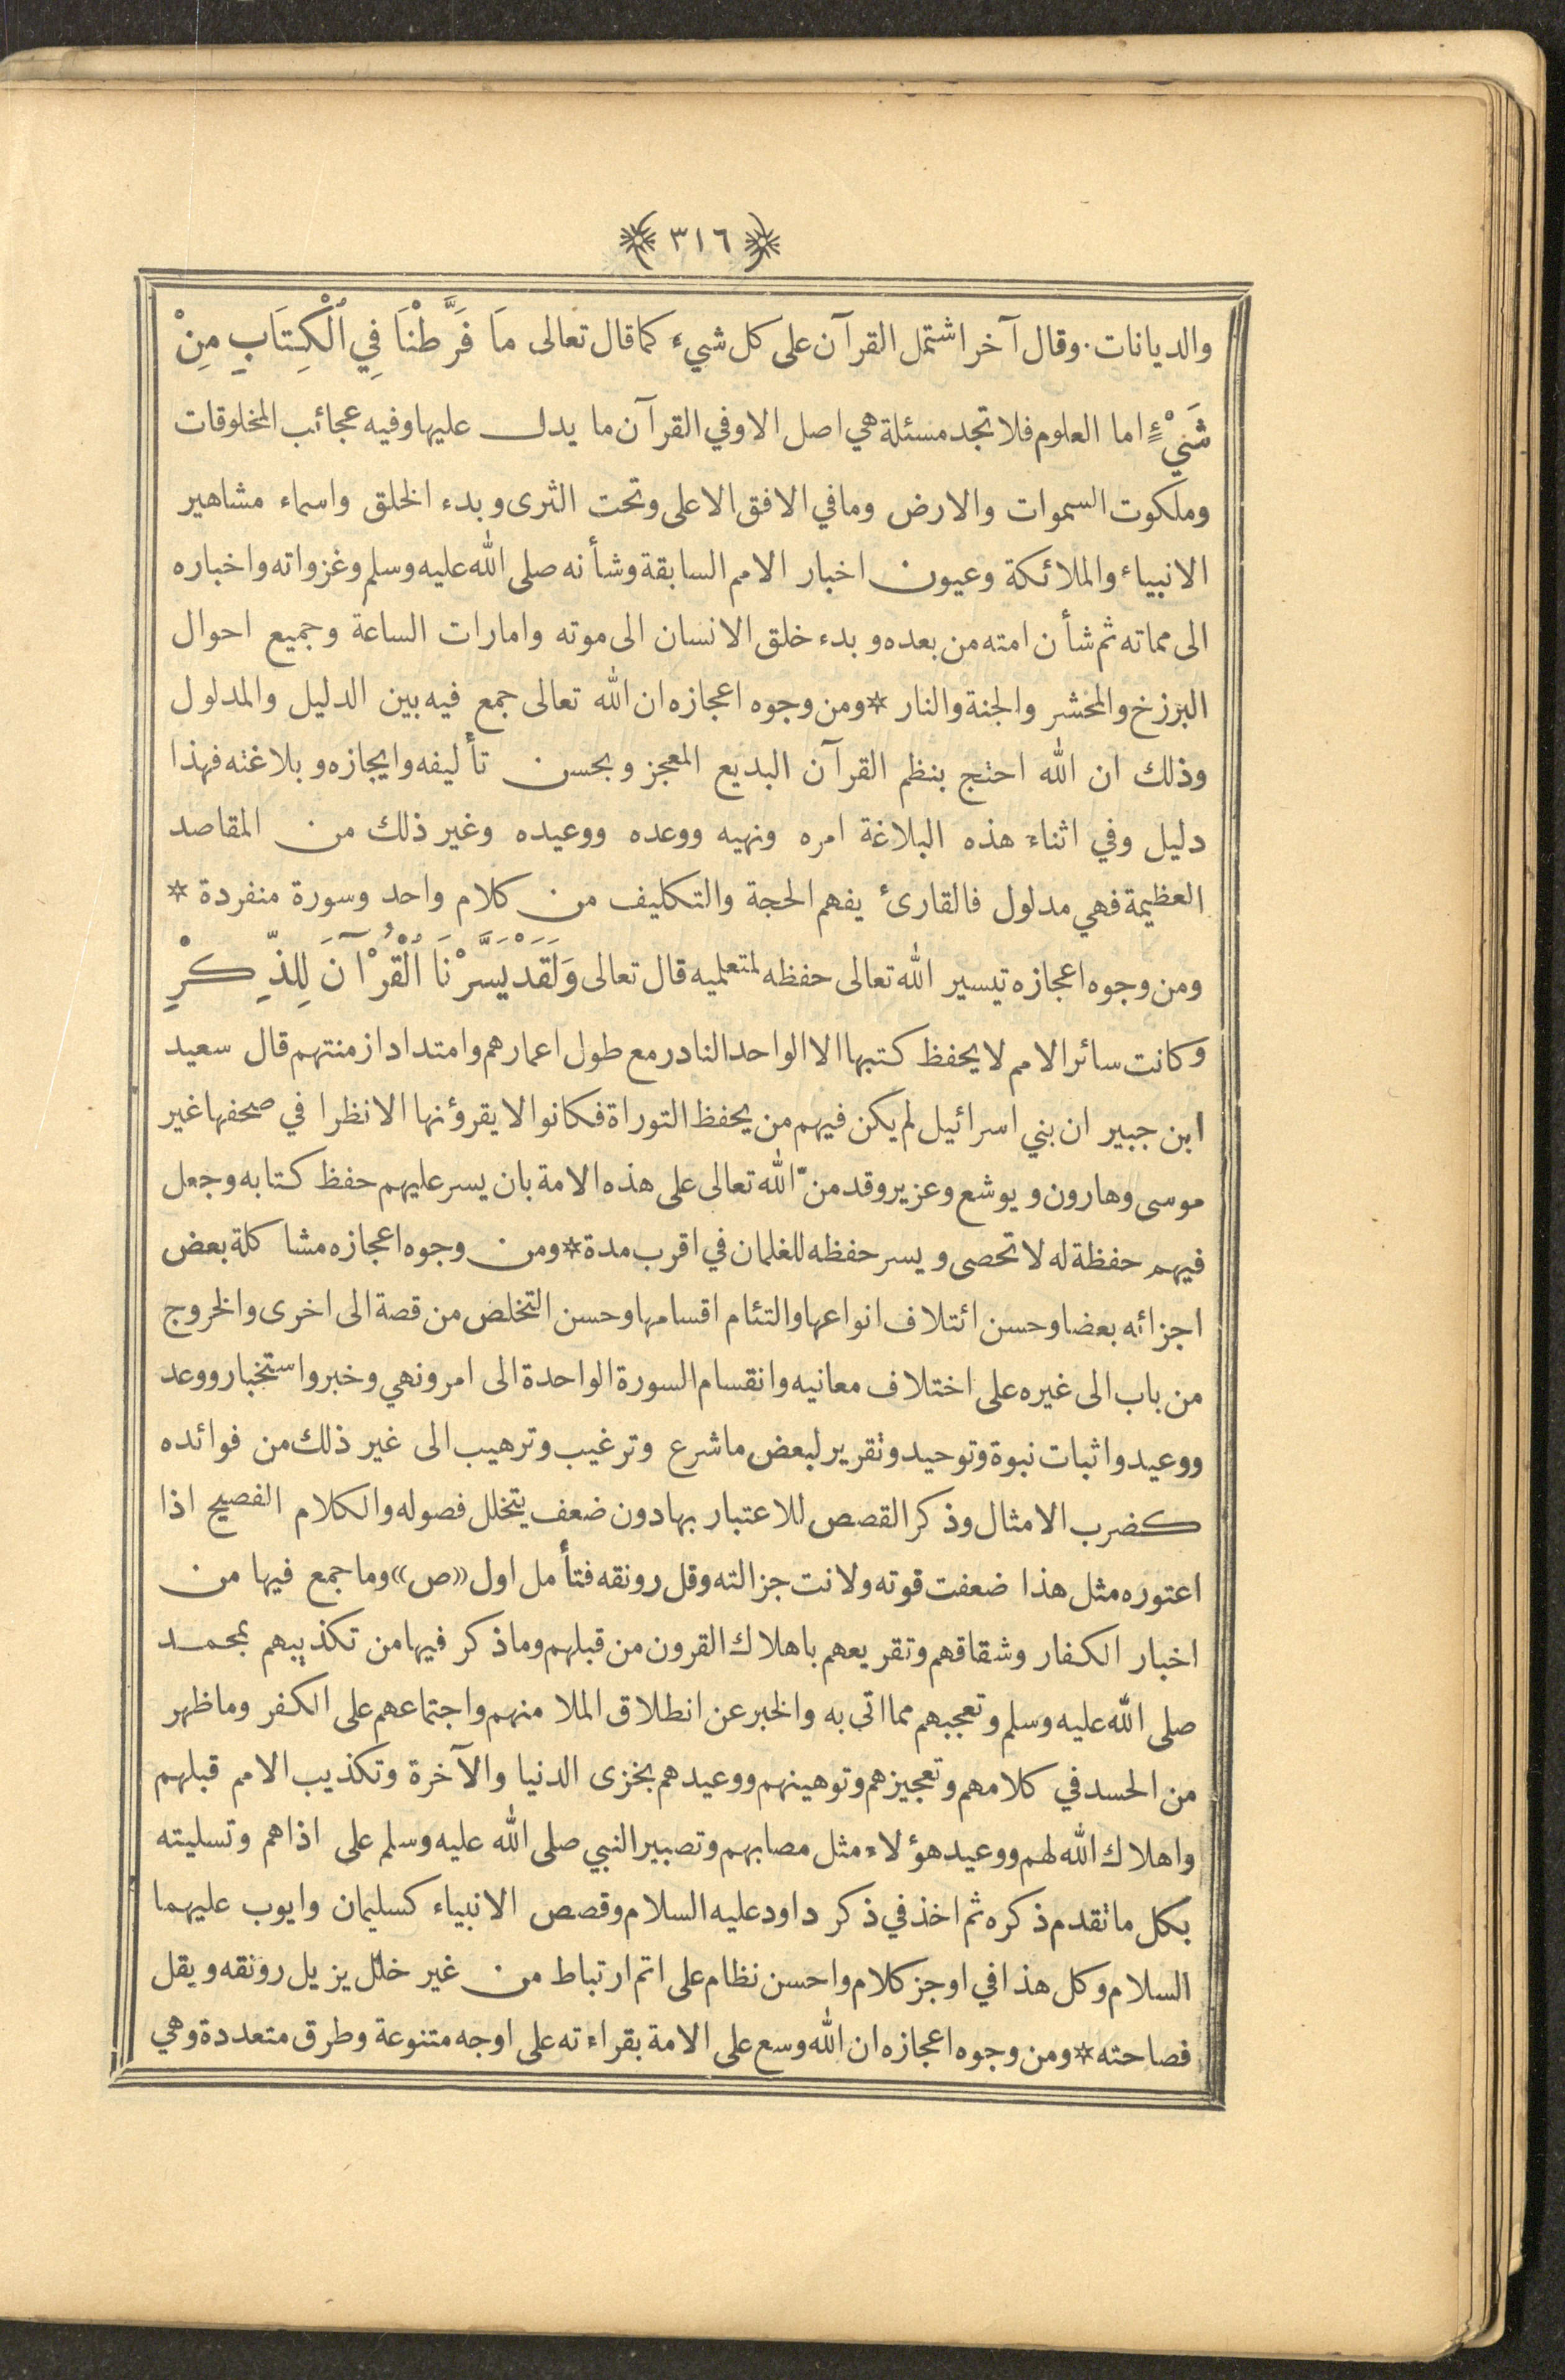 ﴿ ٣١٦ ﴾
والديانات. وقال آخر اشتمل القرآن على كل شيء كما قال تعالى مَا فَرَّطْنَا فِي ٱلْكِتَابِ مِنْ
شَيْءٍ اما العلوم فلا تجد مسئلة هي اصل الا وفي القرآن ما يدل عليها وفيه عجائب المخلوقات
وملكوت السموات والارض وما في الافق الاعلى وتحت الثرى وبدء الخلق واسماء مشاهير
الانبياء والملائكة وعيون اخبار الامم السابقة وشأنه صلى الله عليه وسلم وغزواته واخباره
الى مماته ثم شأن امته من بعده وبدء خلق الانسان الى موته وامارات الساعة وجميع احوال
البرزخ والمحشر والجنة والنار * ومن وجوه اعجازه ان الله تعالى جمع فيه بين الدليل والمدلول
وذلك ان الله احتج بنظم القرآن البديع المعجز وبحسن تأليفه وايجازه وبلاغته فهذا
دليل وفي اثناء هذه البلاغة امره ونهيه ووعده ووعيده وغير ذلك من المقاصد
العظيمة فهي مدلول فالقارئ يفهم الحجة والتكليف من كلام واحد وسورة منفردة *
ومن وجوه اعجازه تيسير الله تعالى حفظه لمتعلميه قال تعالى وَلَقَدْ يَسَّرْنَا ٱلْقُرْآنَ لِلذِّكْرِ
وكانت سائر الامم لا يحفظ كتبها الا الواحد النادر مع طول اعمارهم وامتداد ازمنتهم قال سعيد
ابن جبير ان بني اسرائيل لم يكن فيهم من يحفظ التوراة فكانوا لا يقرؤنها الا نظرا في صحفها غير
موسى وهارون ويوشع وعزير وقد منّ الله تعالى على هذه الامة بان يسر عليهم حفظ كتابه وجعل
فيهم حفظة له لا تحصى ويسر حفظه للغلمان في اقرب مدة * ومن وجوه اعجازه مشاكلة بعض
اجزائه بعضا وحسن ائتلاف انواعها والتئام اقسامها وحسن التخلص من قصة الى اخرى والخروج
من باب الى غيره على اختلاف معانيه وانقسام السورة الواحدة الى امر ونهي وخبر واستخبار ووعد
ووعيد واثبات نبوة وتوحيد وتقرير لبعض ما شرع وترغيب وترهيب الى غير ذلك من فوائده
كضرب الامثال وذكر القصص للاعتبار بها دون ضعف يتخلل فصوله والكلام الفصيح اذا
اعتوره مثل هذا ضعفت قوته ولانت جزالته وقل رونقه فتأمل اول «ص» وما جمع فيها من
اخبار الكفار وشقاقهم وتقريعهم باهلاك القرون من قبلهم وما ذكر فيها من تكذيبهم بمحمد
صلى الله عليه وسلم وتعجبهم مما اتى به والخبر عن انطلاق الملا منهم واجتماعهم على الكفر وما ظهر
من الحسد في كلامهم وتعجيزهم وتوهينهم ووعيدهم بخزى الدنيا والآخرة وتكذيب الامم قبلهم
واهلاك الله لهم ووعيد هؤلاء مثل مصابهم وتصبير النبي صلى الله عليه وسلم على اذاهم وتسليته
بكل ما تقدم ذكره ثم اخذ في ذكر داود عليه السلام وقصص الانبياء كسليمان وايوب عليهما
السلام وكل هذا في اوجز كلام واحسن نظام على اتم ارتباط من غير خلل يزيل رونقه ويقل
فصاحته * ومن وجوه اعجازه ان الله وسع على الامة بقراءته على اوجه متنوعة وطرق متعددة وهي